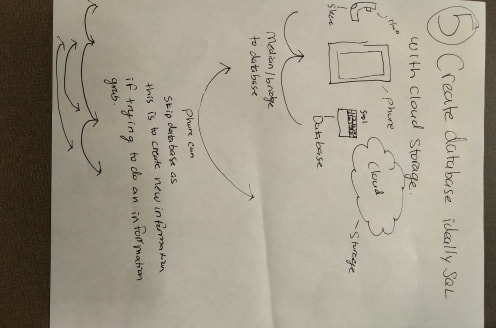 5 Create database ideally SQL
with cloud storage.
phone
Cloud
Sql
Storage
Sleeve
Database
Median/bridge
to database
Phone can
skip database as
this is to create new information
if trying to do an information
grab.